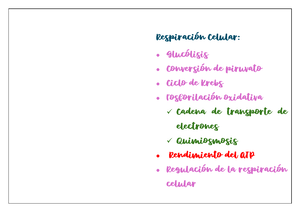 Respiración Celular:
• Glucólisis
• Conversión de piruvato
• Ciclo de Krebs
• Fosforilación oxidativa
✓ Cadena de transporte de
electrones
✓ Quimiosmosis
• Rendimiento del ATP
• Regulación de la respiración
celular